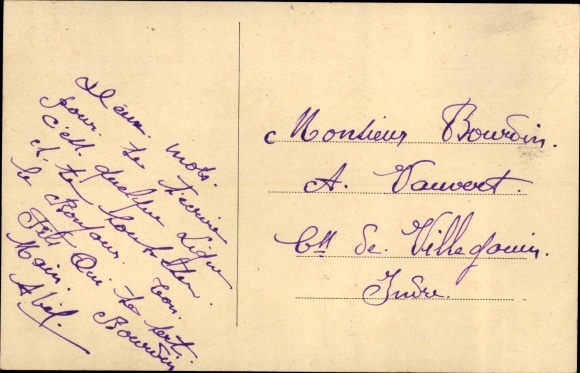 Deux mots.
pour te t'écrire
c'est quelque Lign
et te souhaiter
le Bonjour. ton
Fils Qui te sert
Main. Bourdin
Abel.
Monsieur Bourdin.
A. Vauvert.
Cne de Villegouin.
Indre.